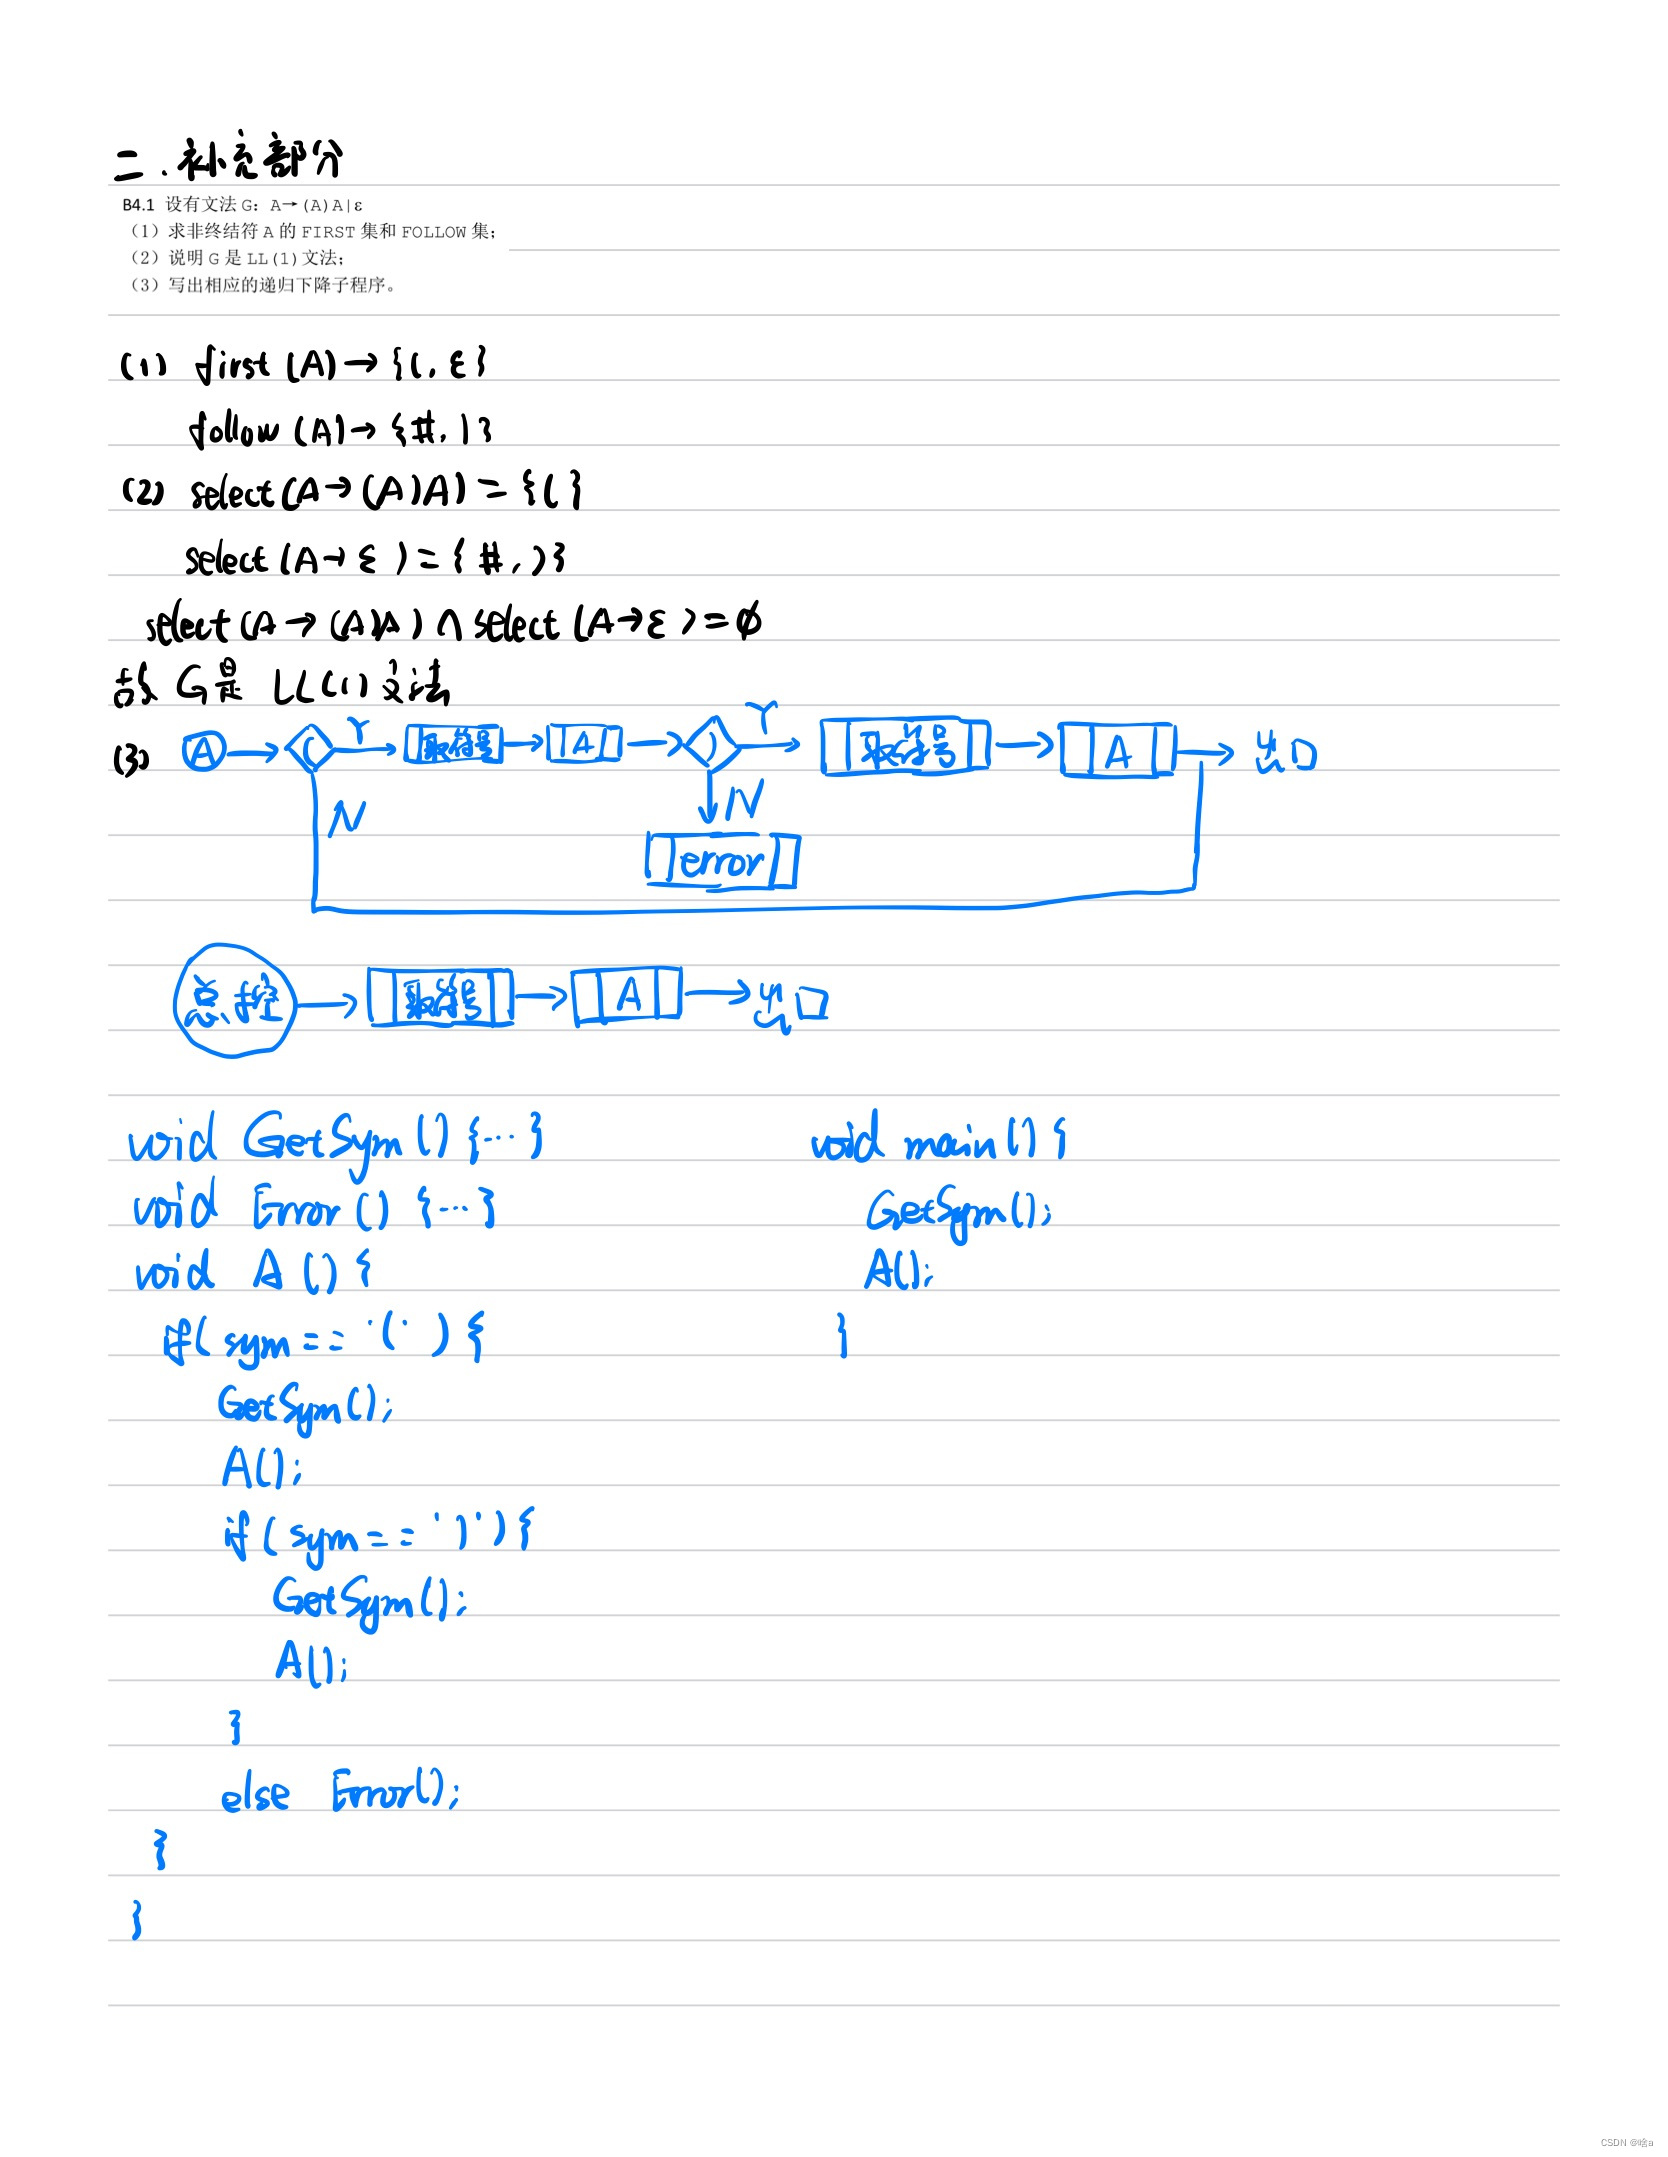 二.补充部分
B4.1 设有文法 G: A→(A)A|ε
（1）求非终结符 A 的 FIRST 集和 FOLLOW 集;
（2）说明 G 是 LL(1)文法;
（3）写出相应的递归下降子程序。
(1) first (A)→{(, ε}
follow (A)→{#, )}
(2) select(A→(A)A) = {(}
select (A→ε) = {#, )}
select(A→(A)A) ∩ select (A→ε) = ∅
故 G是 LL(1)文法
(3) A → ( Y → 取符号 → A → ) Y → 取符号 → A → 出口
N N
error
总控 → 取符号 → A → 出口
void GetSym () {...} void main() {
void Error () {...} GetSym();
void A () { A();
if( sym == '(' ) { }
GetSym();
A();
if( sym == ')') {
GetSym();
A();
}
else Error();
}
}
CSDN @啥a